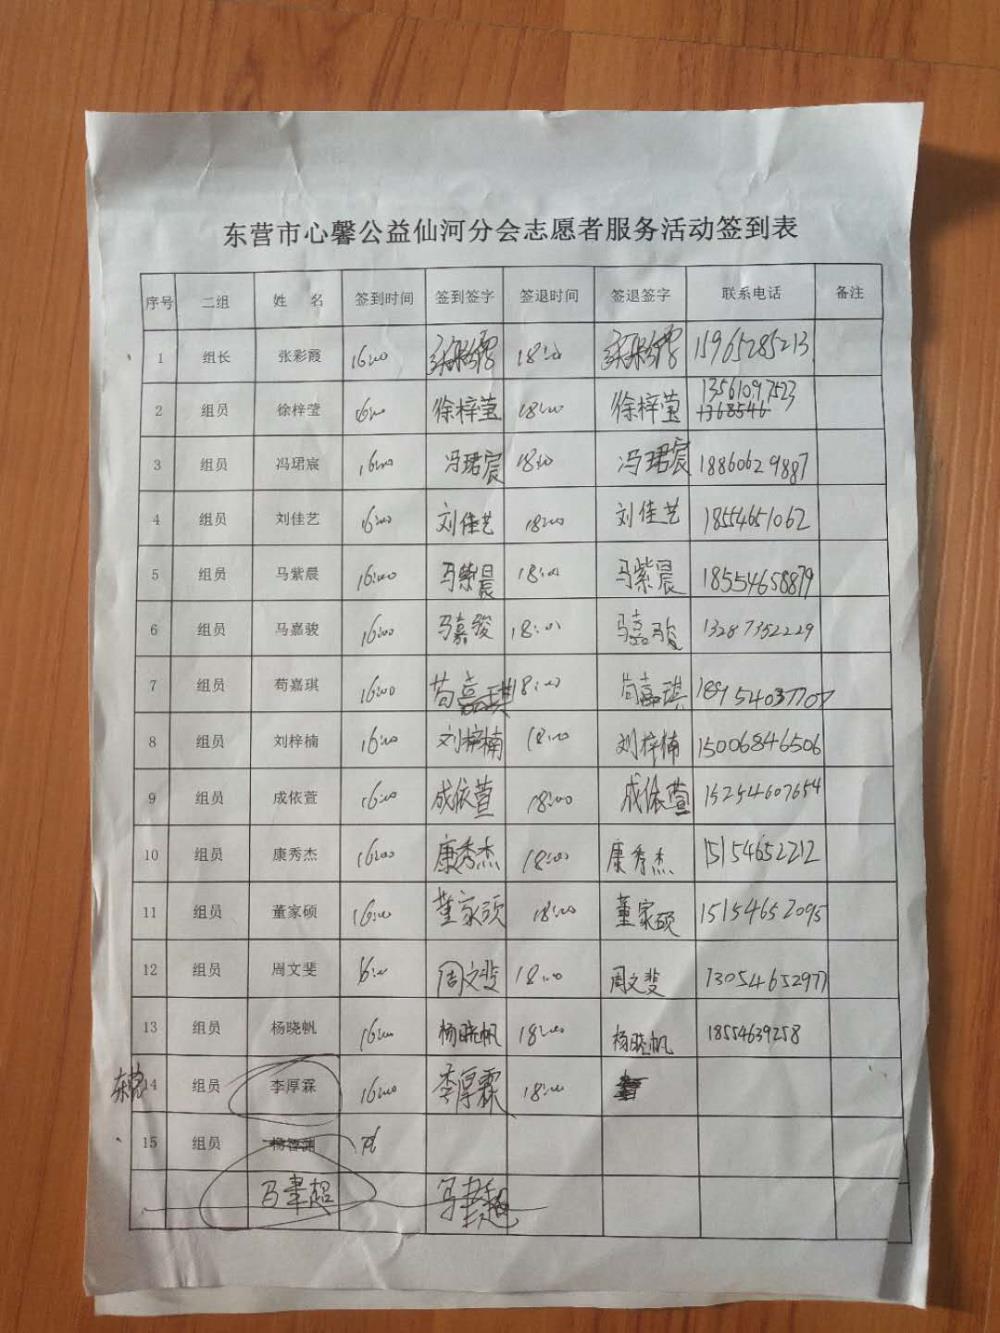 东营市心馨公益仙河分会志愿者服务活动签到表
序号 二组 姓 名 签到时间 签到签字 签退时间 签退签字 联系电话 备注
1 组长 张彩霞 16:00 张彩霞 18:00 张彩霞 15965285213
2 组员 徐梓莹 16:00 徐梓莹 18:00 徐梓莹 13561097523
1368546
3 组员 冯珺宸 16:00 冯珺宸 18:00 冯珺宸 18860629887
4 组员 刘佳艺 16:00 刘佳艺 18:00 刘佳艺 18554651062
5 组员 马紫晨 16:00 马紫晨 18:00 马紫晨 18554658879
6 组员 马嘉骏 16:00 马嘉骏 18:00 马嘉骏 13287352229
7 组员 荀嘉琪 16:00 荀嘉琪 18:00 荀嘉琪 18954037707
8 组员 刘梓楠 16:00 刘梓楠 18:00 刘梓楠 15006846506
9 组员 成依萱 16:00 成依萱 18:00 成依萱 15254607654
10 组员 康秀杰 16:00 康秀杰 18:00 康秀杰 15154652212
11 组员 董家硕 16:00 董家硕 18:00 董家硕 15154652095
12 组员 周文斐 16:00 周文斐 18:00 周文斐 13054652977
13 组员 杨晓帆 16:00 杨晓帆 18:00 杨晓帆 18554639258
东营 14 组员 李厚霖 16:00 李厚霖 18:00
15 组员
马聿超 马聿超